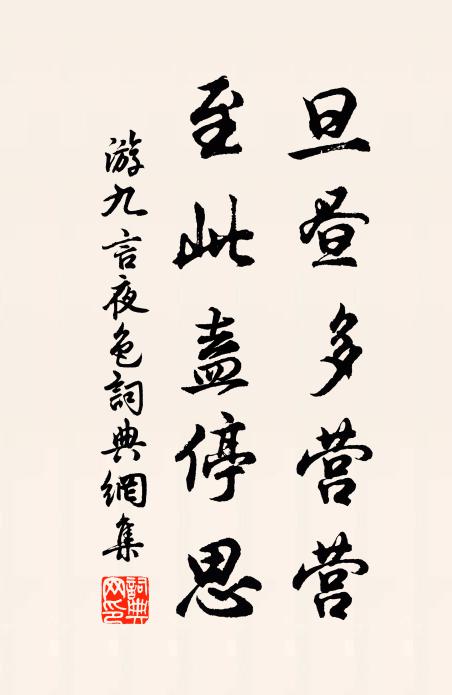 旦昼多营营
至此盍停思
游九言夜色詞典網集